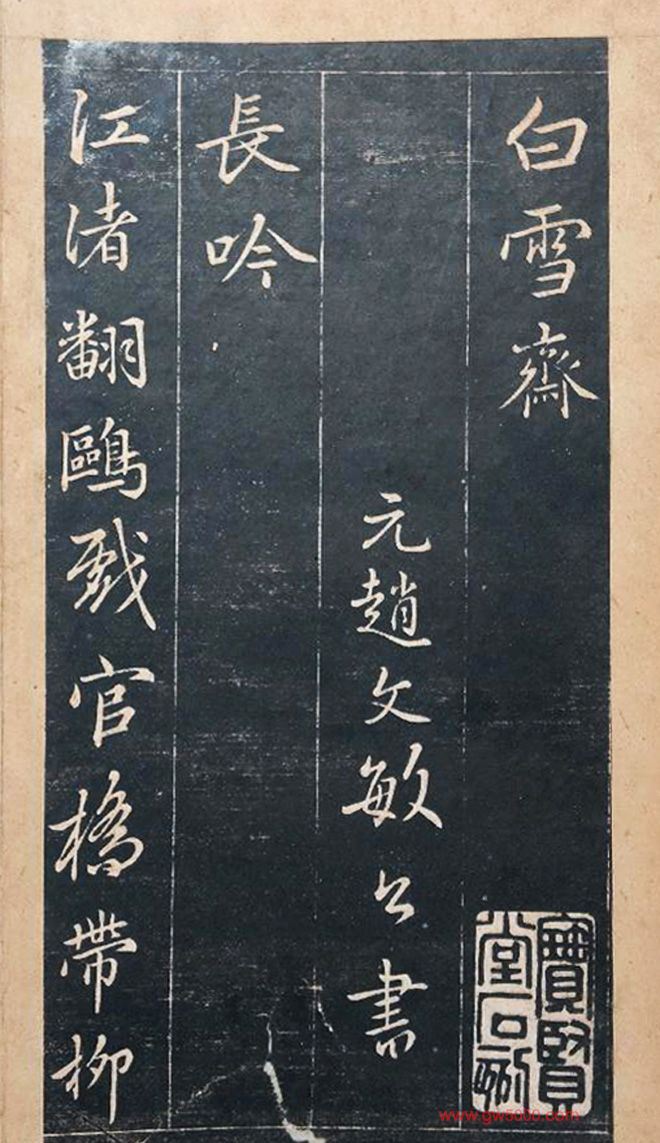 白雪齋
元趙文敏公書
長吟
江渚翻鷗戲官橋帶柳
寶賢堂石刻
www.gw5000.com